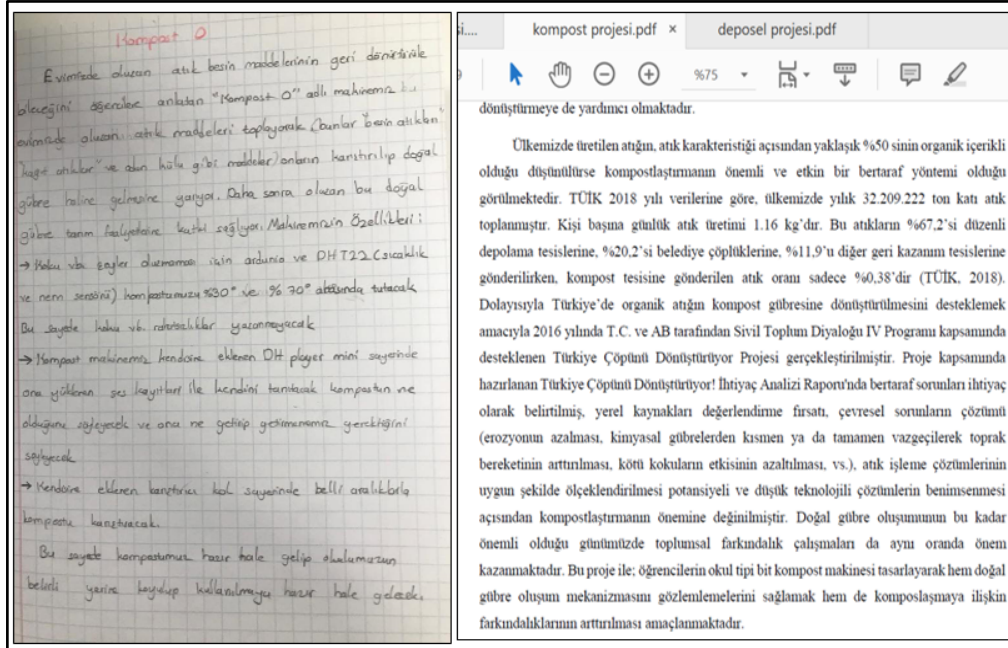 Kompost O
Evimizde oluşan atık besin maddelerinin geri dönüştürüle
bileceğini öğrencilere anlatan "Kompost O" adlı makinemiz
evimizde oluşan atık maddeleri toplayarak (bunlar besin atıkları
kağıt atıklar ve odun külü gibi maddeler) onların karıştırılıp doğal
gübre haline gelmesine yarıyor. Daha sonra oluşan bu doğal
gübre tarım faaliyetlerine katkı sağlıyor. Makinemizin Özellikleri:
→ Koku vb. gazlar oluşmaması için ardunio ve DHT22 (sıcaklık
ve nem sensörü) kompostumuzu %30° ve %70° arasında tutacak
Bu sayede koku vb. rahatsızlıklar yaşanmayacak
→ Kompost makinemiz kendisine eklenen DH player mini sayesinde
ona yüklenen ses kayıtları ile kendini tanıtacak kompostun ne
olduğunu söyleyecek ve ona ne getirip getirmememiz gerektiğini
söyleyecek
→ Kendisine eklenen karıştırıcı kol sayesinde belli aralıklarla
kompostu karıştıracak.
Bu sayede kompostumuz hazır hale gelip okulumuzun
belirli yerine koyulup kullanılmaya hazır hale gelecek.
kompost projesi.pdf ×
deposel projesi.pdf
%75
dönüştürmeye de yardımcı olmaktadır.
Ülkemizde üretilen atığın, atık karakteristiği açısından yaklaşık %50 sinin organik içerikli
olduğu düşünülürse kompostlaştırmanın önemli ve etkin bir bertaraf yöntemi olduğu
görülmektedir. TÜİK 2018 yılı verilerine göre, ülkemizde yılık 32.209.222 ton katı atık
toplanmıştır. Kişi başına günlük atık üretimi 1.16 kg'dır. Bu atıkların %67,2'si düzenli
depolama tesislerine, %20,2'si belediye çöplüklerine, %11,9'u diğer geri kazanım tesislerine
gönderilirken, kompost tesisine gönderilen atık oranı sadece %0,38'dir (TÜİK, 2018).
Dolayısıyla Türkiye'de organik atığın kompost gübresine dönüştürülmesini desteklemek
amacıyla 2016 yılında T.C. ve AB tarafından Sivil Toplum Diyaloğu IV Programı kapsamında
desteklenen Türkiye Çöpünü Dönüştürüyor Projesi gerçekleştirilmiştir. Proje kapsamında
hazırlanan Türkiye Çöpünü Dönüştürüyor! İhtiyaç Analizi Raporu'nda bertaraf sorunları ihtiyaç
olarak belirtilmiş, yerel kaynakları değerlendirme fırsatı, çevresel sorunların çözümü
(erozyonun azalması, kimyasal gübrelerden kısmen ya da tamamen vazgeçilerek toprak
bereketinin arttırılması, kötü kokuların etkisinin azaltılması, vs.), atık işleme çözümlerinin
uygun şekilde ölçeklendirilmesi potansiyeli ve düşük teknolojili çözümlerin benimsenmesi
açısından kompostlaştırmanın önemine değinilmiştir. Doğal gübre oluşumunun bu kadar
önemli olduğu günümüzde toplumsal farkındalık çalışmaları da aynı oranda önem
kazanmaktadır. Bu proje ile; öğrencilerin okul tipi bit kompost makinesi tasarlayarak hem doğal
gübre oluşum mekanizmasını gözlemlemelerini sağlamak hem de komposlaşmaya ilişkin
farkındalıklarının arttırılması amaçlanmaktadır.